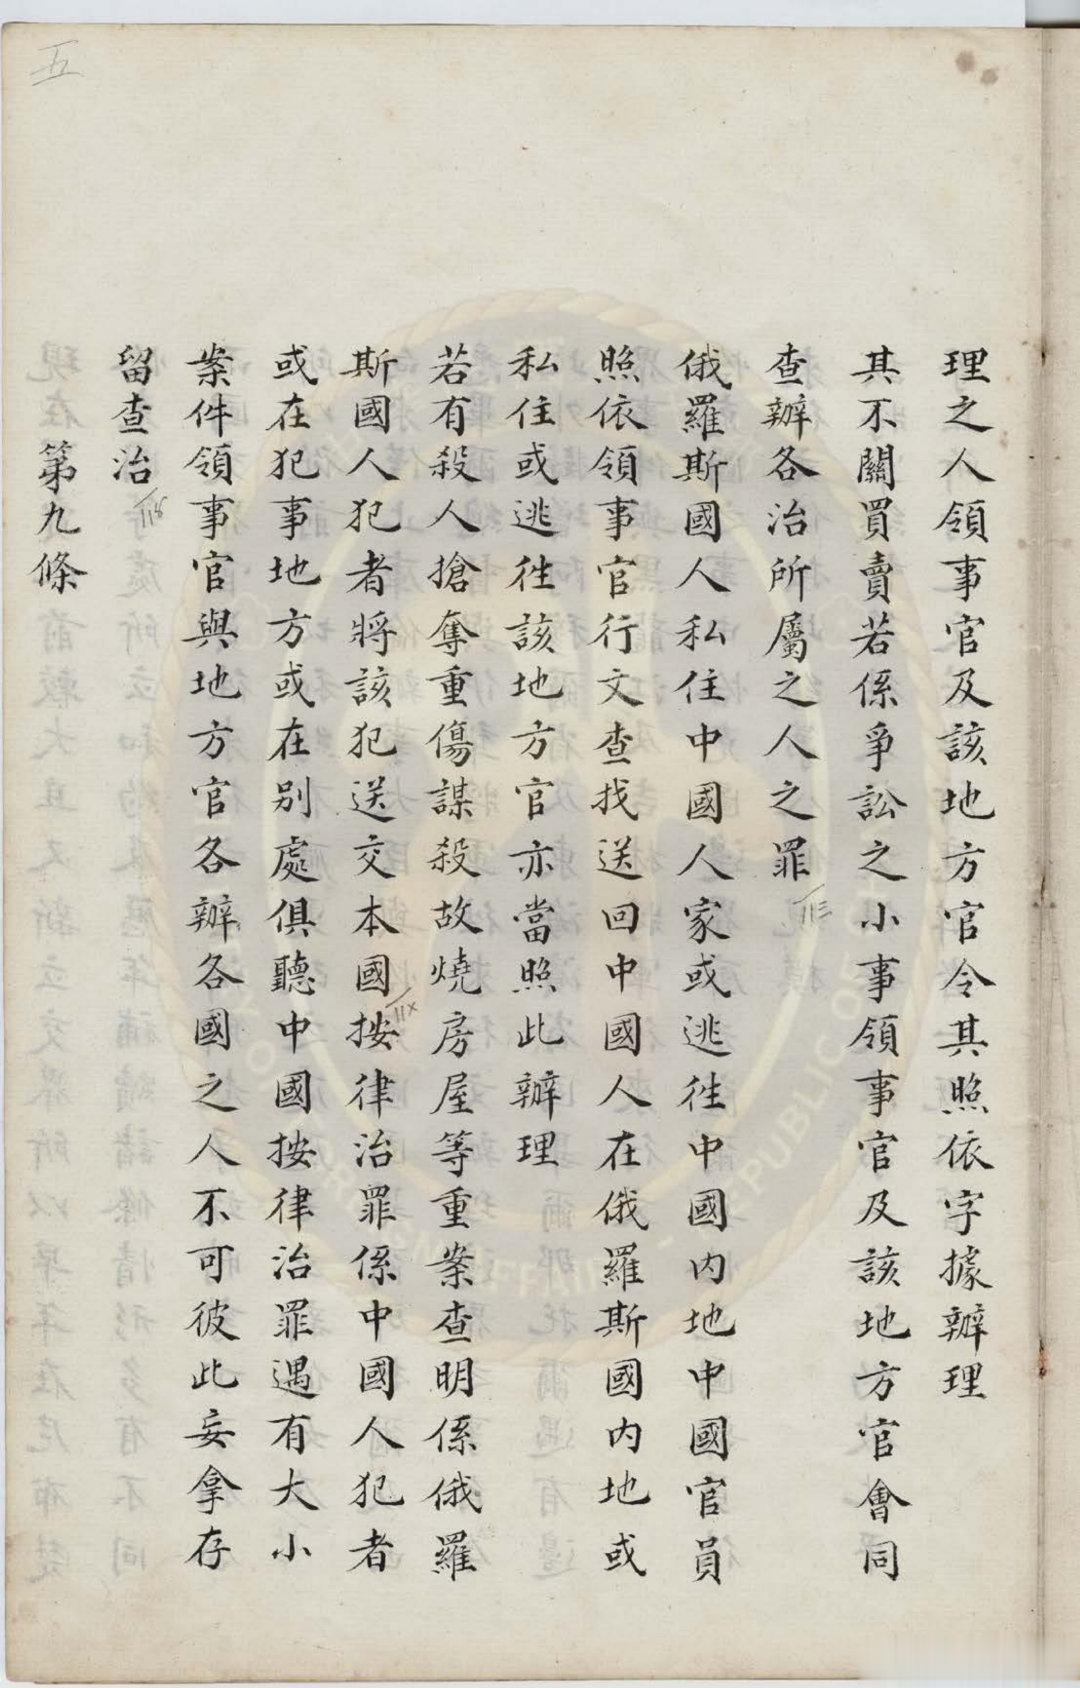 五
理之人領事官及該地方官令其照依字據辦理
其不關買賣若係爭訟之小事領事官及該地方官會同
查辦各治所屬之人之罪
俄羅斯國人私住中國人家或逃徃中國內地中國官員
照依領事官行文查找送回中國人在俄羅斯國內地或
私住或逃徃該地方官亦當照此辦理
若有殺人搶奪重傷謀殺故燒房屋等重案查明係俄羅
斯國人犯者將該犯送交本國按律治罪係中國人犯者
或在犯事地方或在別處俱聽中國按律治罪遇有大小
案件領事官與地方官各辦各國之人不可彼此妄拿存
留查治
第九條